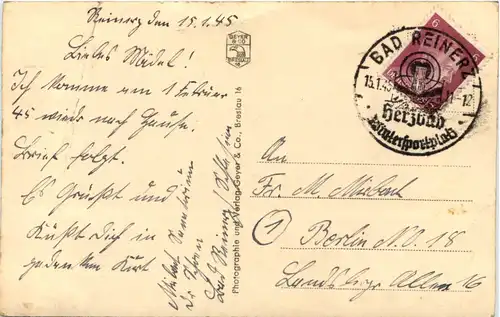 Reinerz den 15.1.45
Liebes Mädel!
Ich komme am 1 Februar
45 wieder nach Hause.
Brief folgt.
Es Grüßt und
Küßt Dich in
gedanken Kurt
Dr Schoen
Bad Reinerz / Schlesien
GEYER
& CO
BRESLAU
16
Photographie und Verlag Geyer & Co., Breslau 16
6
BAD REINERZ
15.1.45
Herzbad
Wintersportplatz
An
Fr. M. Mirbach
1 Berlin N.O. 18
Landsbgr. Allee 16